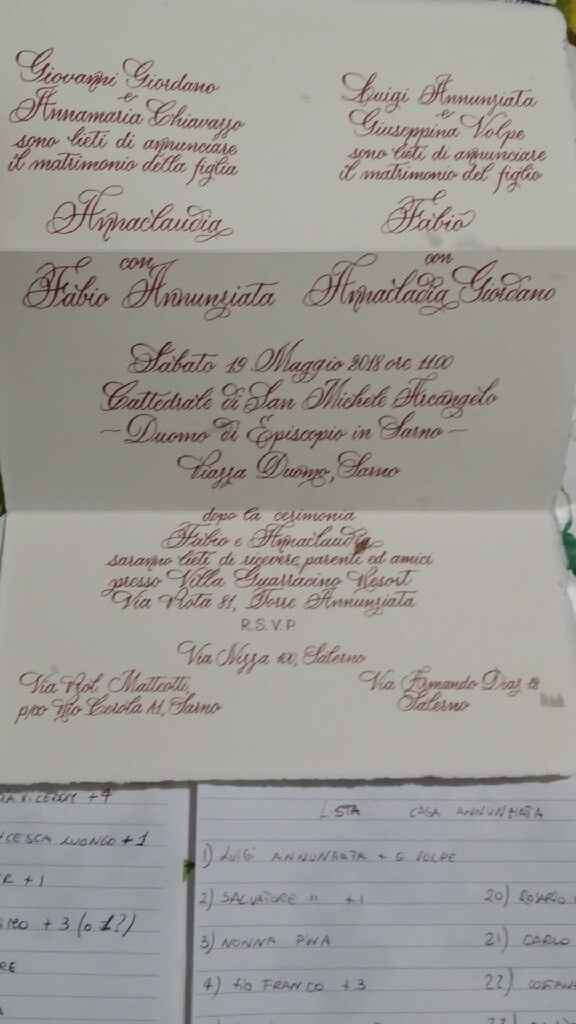 Giovanni Giordano
e
Annamaria Chiavazzo
sono lieti di annunciare
il matrimonio della figlia
Annaclaudia
con
Fabio Annunziata
Luigi Annunziata
e
Giuseppina Volpe
sono lieti di annunciare
il matrimonio del figlio
Fabio
con
Annacladia Giordano
Sabato 19 Maggio 2018 ore 11:00
Cattedrale di San Michele Arcangelo
– Duomo di Episcopio in Sarno –
Piazza Duomo, Sarno
dopo la cerimonia
Fabio e Annaclaudia
saranno lieti di ricevere parenti ed amici
presso Villa Guarracino Resort
Via Rota 81, Torre Annunziata
R.S.V.P
Via Nizza 100, Salerno
Via Prol. Matteotti,
p/co Rio Cerola A1, Sarno
Via Armando Diaz 18
Salerno
+4
LUONGO +1
+1
+3 (o 1?)
LISTA CASA ANNUNZIATA
1) LUIGI ANNUNZIATA + G VOLPE
2) SALVATORE " +1
3) NONNA PINA
4) ZIO FRANCO +3
20) ROSARIO
21) CARLO
22)
23)